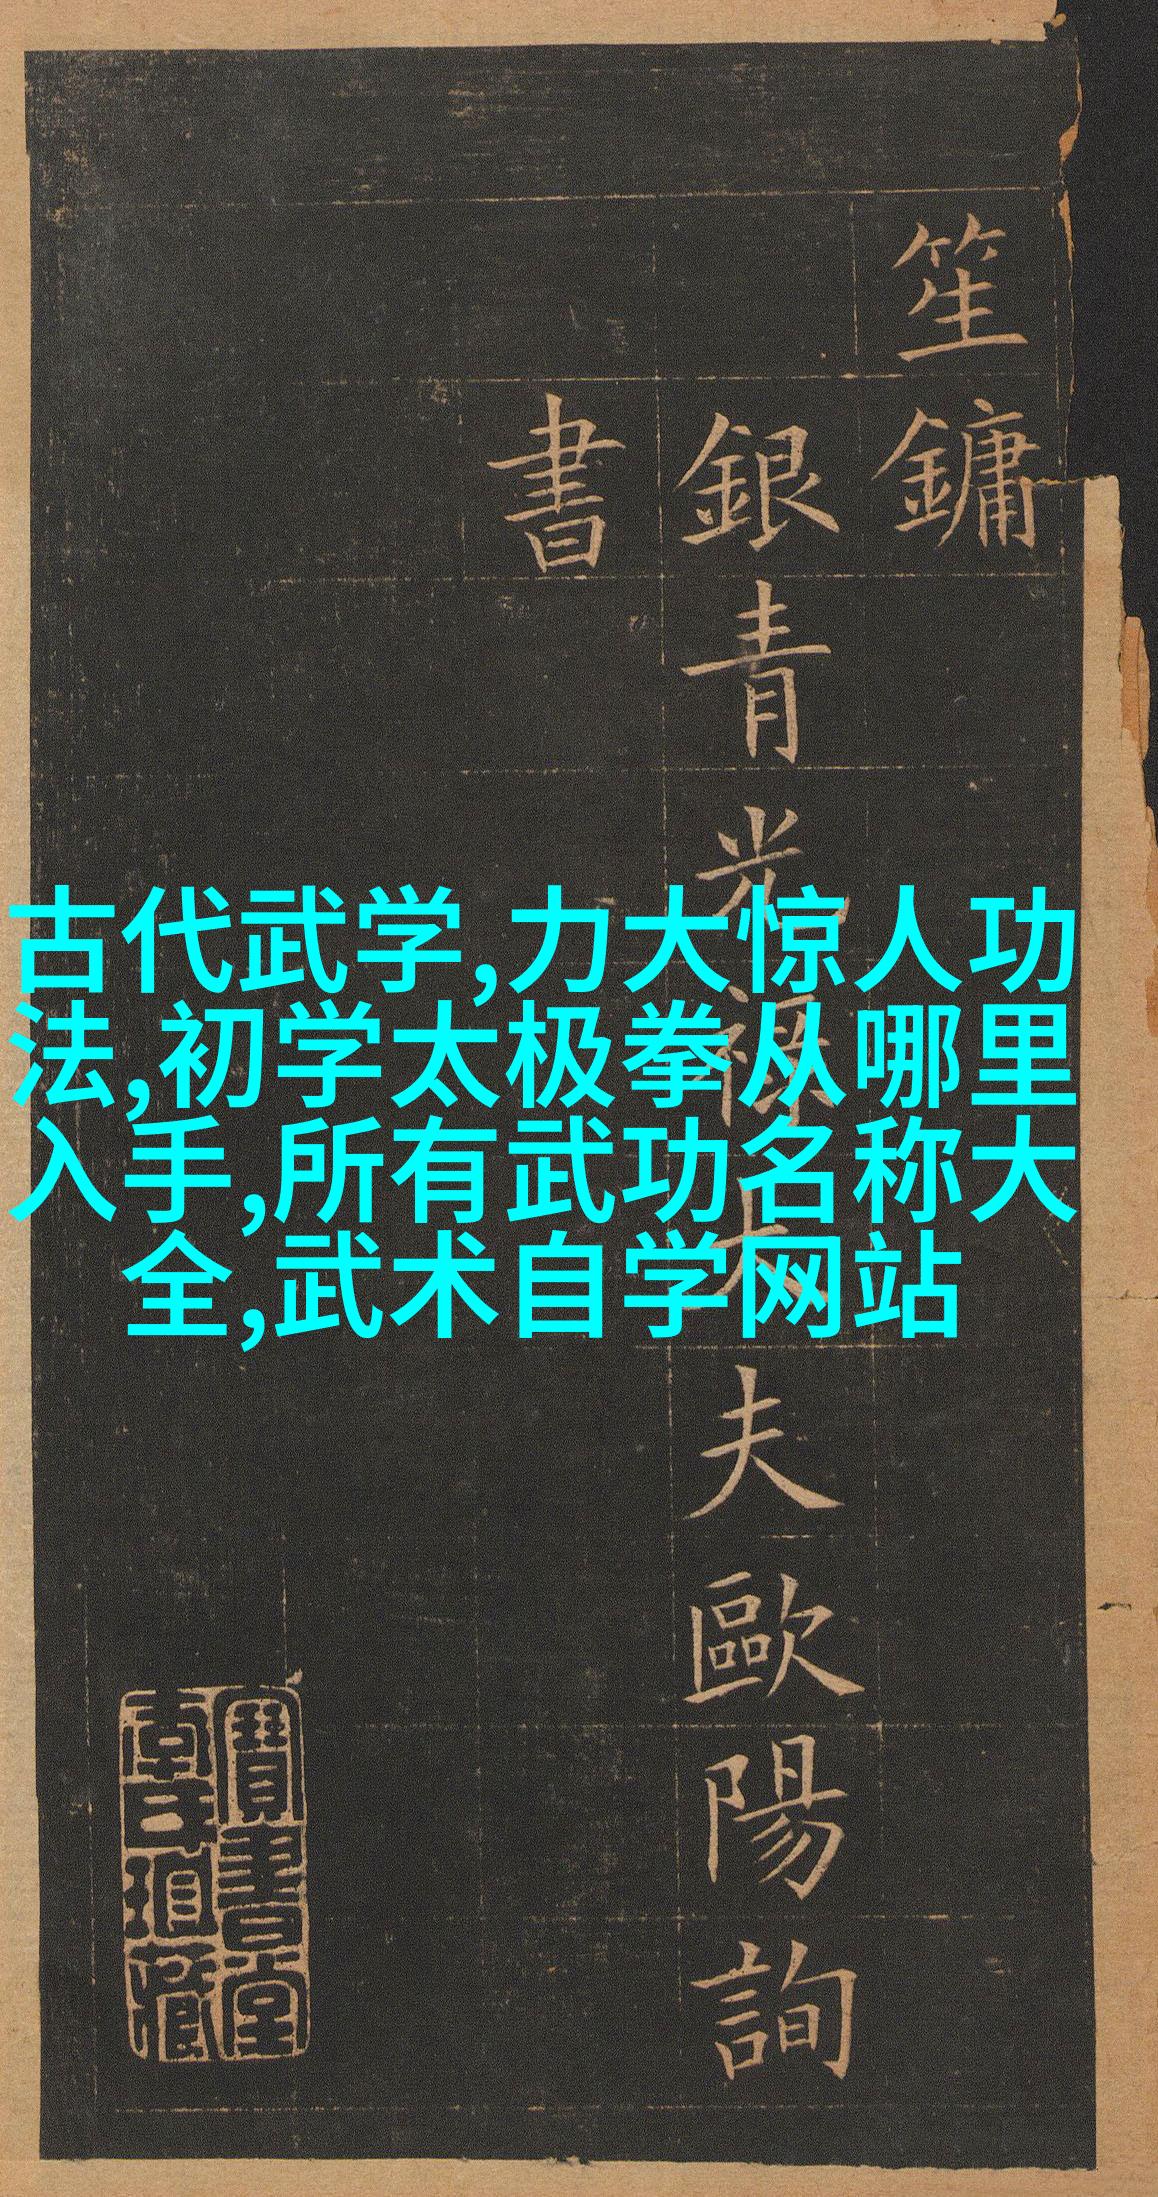 笙鏞
銀青光祿大夫歐陽詢
書
古代武学,力大惊人功
法,初学太极拳从哪里
入手,所有武功名称大
全,武术自学网站
寶書堂